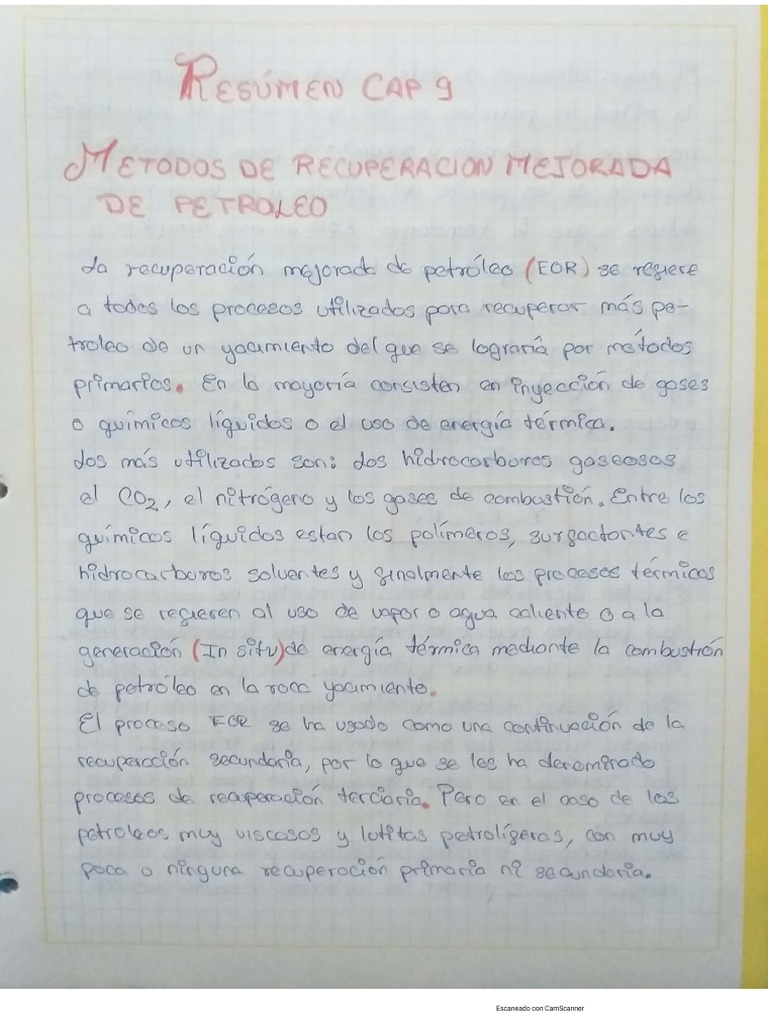 RESÚMEN CAP 9
METODOS DE RECUPERACION MEJORADA
DE PETROLEO
La recuperación mejorada de petróleo (EOR) se refiere
a todos los procesos utilizados para recuperar más pe-
troleo de un yacimiento del que se lograría por metódos
primarios. En la mayoría consisten en inyección de gases
o químicos líquidos o el uso de energía térmica.
Los más utilizados son: Los hidrocarbores gaseosos
el CO2, el nitrógeno y los gases de combustión. Entre los
químicos líquidos estan los polímeros, surfactantes e
hidrocarburos solventes y finalmente los procesos térmicos
que se refieren al uso de vapor o agua caliente o a la
generación (In situ) de energía térmica mediante la combustión
de petróleo en la roca yacimiento.
El proceso EOR se ha usado como una continuación de la
recuperación secundaria, por lo que se les ha denominado
procesos de recuperación terciaria. Pero en el caso de los
petroleos muy viscosos y lutitas petrolíferas, con muy
poca o ninguna recuperación primaria ni secundaria.
Escaneado con CamScanner